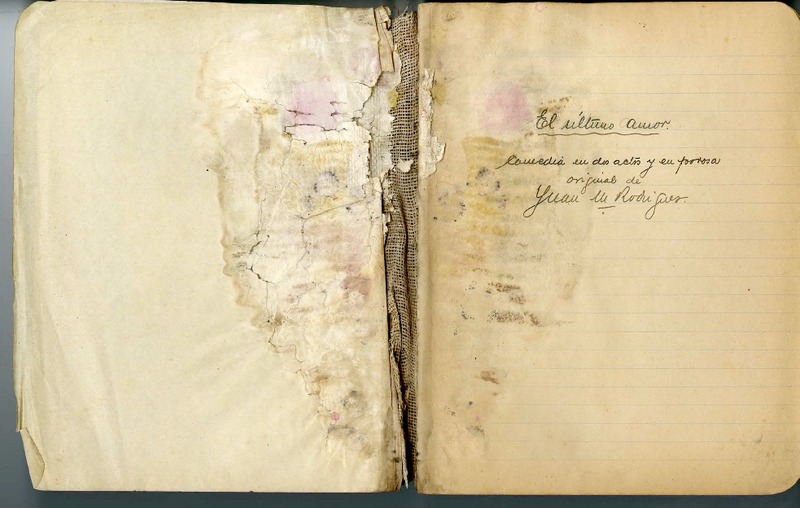 El último amor.
Comedia en dos actos y en prosa
original de
Juan M. Rodríguez.